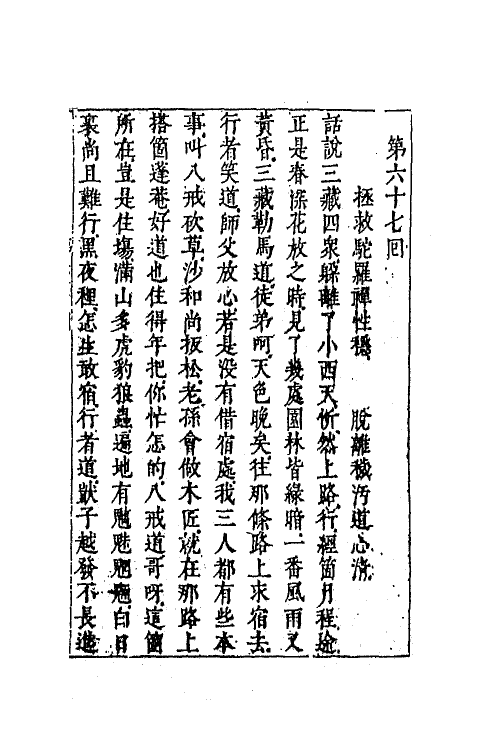 第六十七回
拯救駝羅禪性穩　脫離穢汚道心淸
話說三藏四衆躱離了小西天忻然上路行經箇月程途
正是春深花放之時見了幾處園林皆綠暗一番風雨又
黃昏三藏勒馬道徒弟呵天色晚矣往那條路上求宿去
行者笑道師父放心若是没有借宿處我三人都有些本
事叫八戒砍草沙和尚扳松老孫會做木匠就在那路上
搭箇蓬菴好道也住得年把你忙怎的八戒道哥呀這箇
所在豈是住塲滿山多虎豹狼蟲遍地有魑魅魍魎白日
裏尚且難行黑夜裡怎生敢宿行者道獃子越發不長進